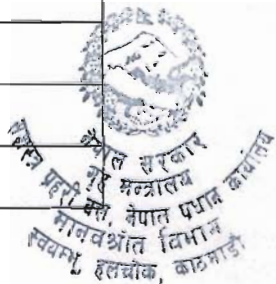 नेपाल सरकार
गृह मन्त्रालय
सशस्त्र प्रहरी बल, नेपाल प्रधान कार्यालय
मानवश्रोत विभाग
स्वयम्भू हलचोक, काठमाडौं